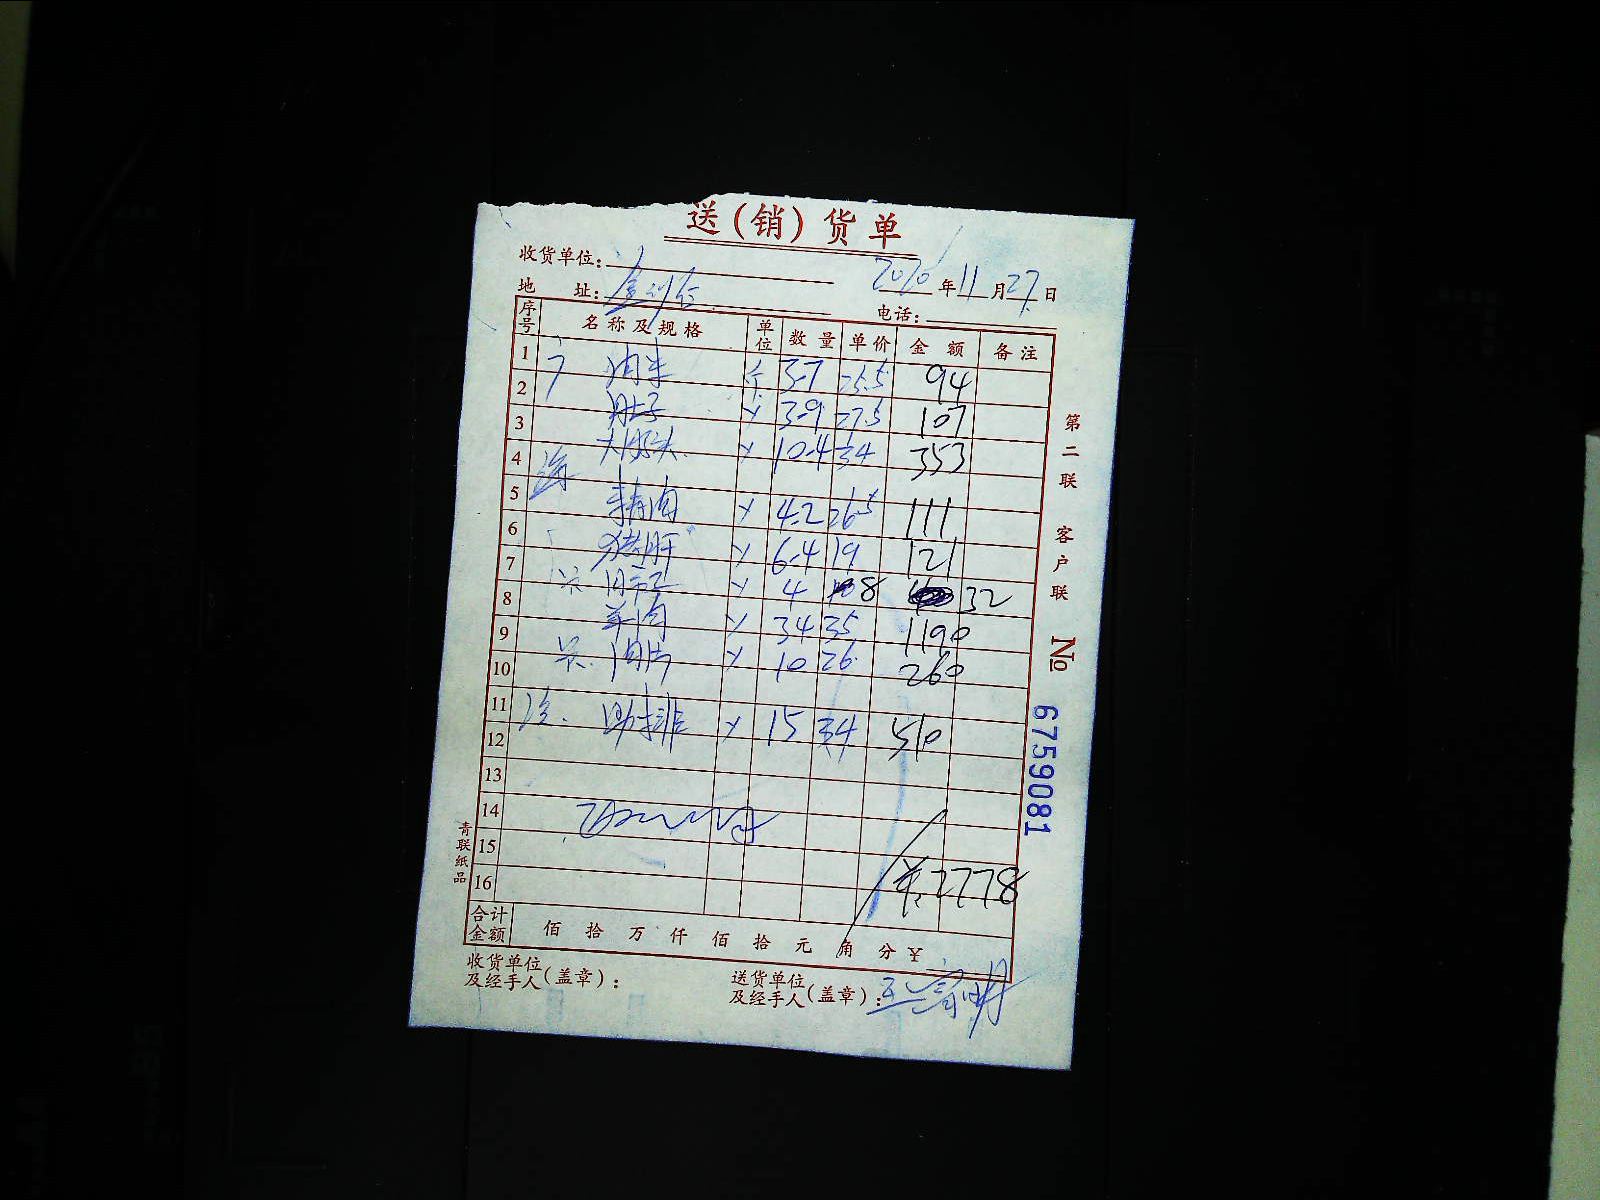 送(销)货单
收货单位:
2020年11月27日
地 址:
电话:
序号 名称及规格 单位 数量 单价 金额 备注
1 肉 3.7 25.5 94
2 肚子 3.9 27.5 107
3 大 10.4 34 353
4
5 精肉 4.2 26.5 111
6 猪肝 6.4 19 121
7 4 8 32
8 羊肉 34 35 1190
9 肉片 10 26 260
10
11 肋排 15 34 510
12
13
14
15
16 2778
合计金额 佰 拾 万 仟 佰 拾 元 角 分 ¥
收货单位及经手人(盖章):
送货单位及经手人(盖章):
第二联 客户联
No 6759081
青联纸品